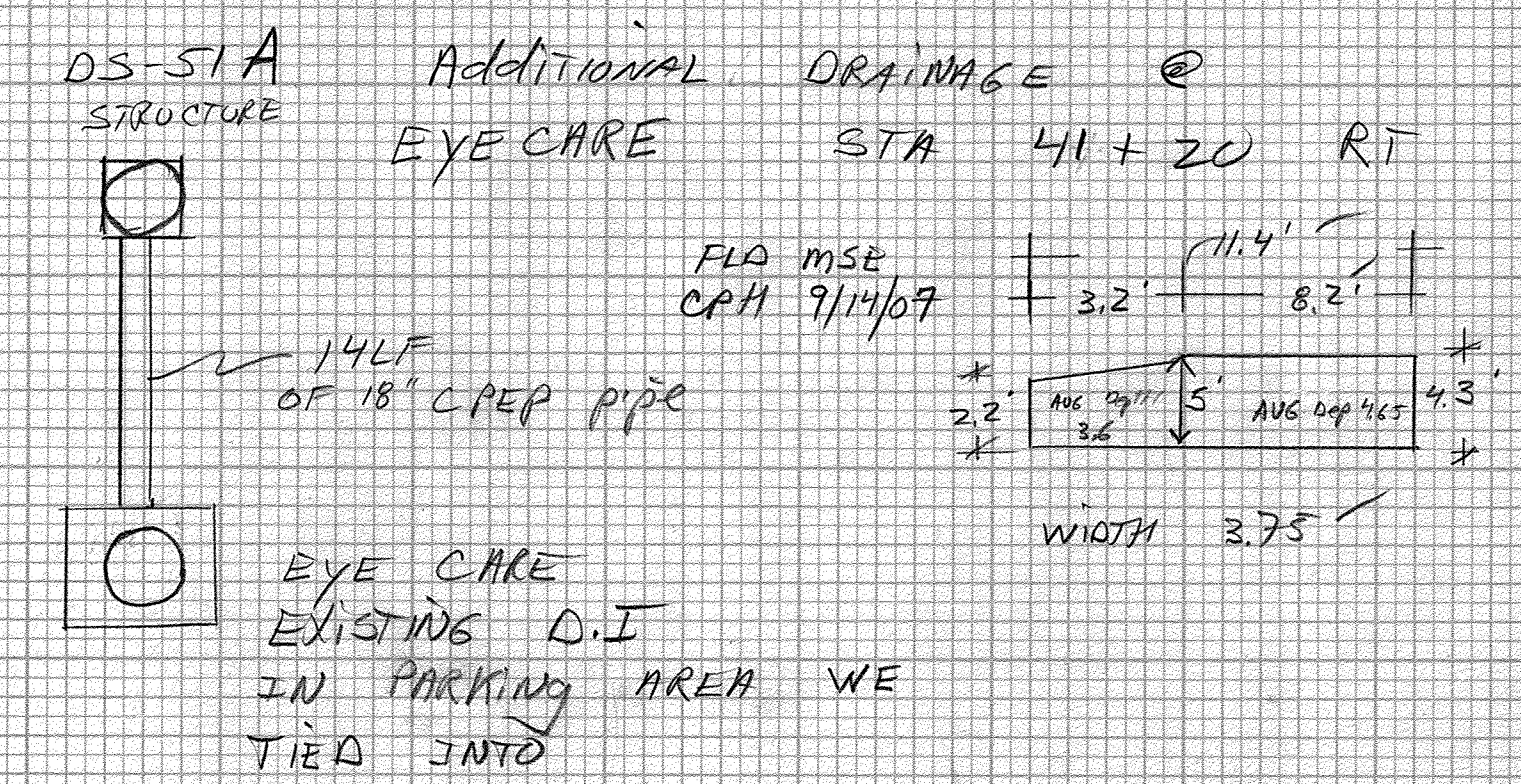 DS-51A Additional DRAINAGE @
STRUCTURE
EYE CARE STA 41+20 RT
FLD MSE
CPH 9/14/07
11.4'
3.2' 8.2'
14LF
OF 18" CPEP pipe
2.2'
AVG
3.6
5'
AVG Dep 4.65
4.3'
WIDTH 3.75
EYE CARE
EXISTING D.I
IN PARKING AREA WE
TIED INTO